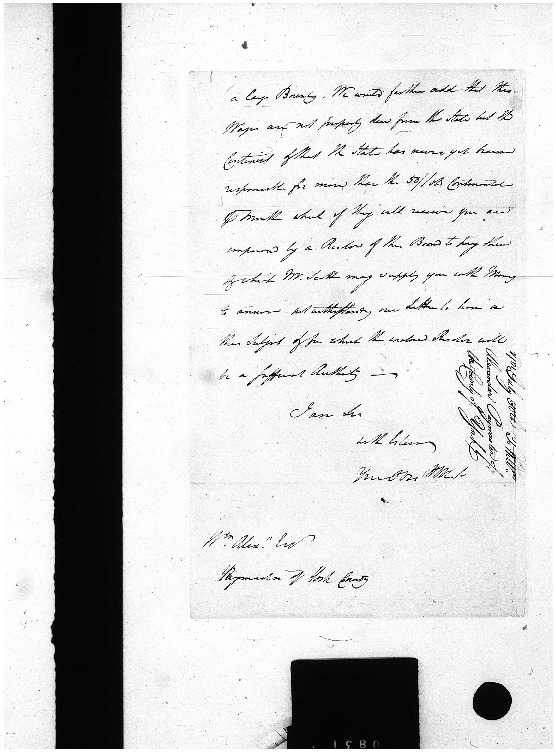 a large Bounty. We would further add that their
Wages are not properly due from the State but the
Continent & that the State has never yet become
responsible for more than the 50/ Continental
month which if they will receive you are
impowered by a Resolve of this Board to pay them
by which Mr. may supply you with Money
to answer notwithstanding our Letter to him on
this Subject & for which the enclosed Resolve will
be a sufficient Authority —
I am Sir
with Esteem
Your
Wm. Alexr. Esqr
Paymaster of York County
Alexander Paymaster of
the County of York
0831